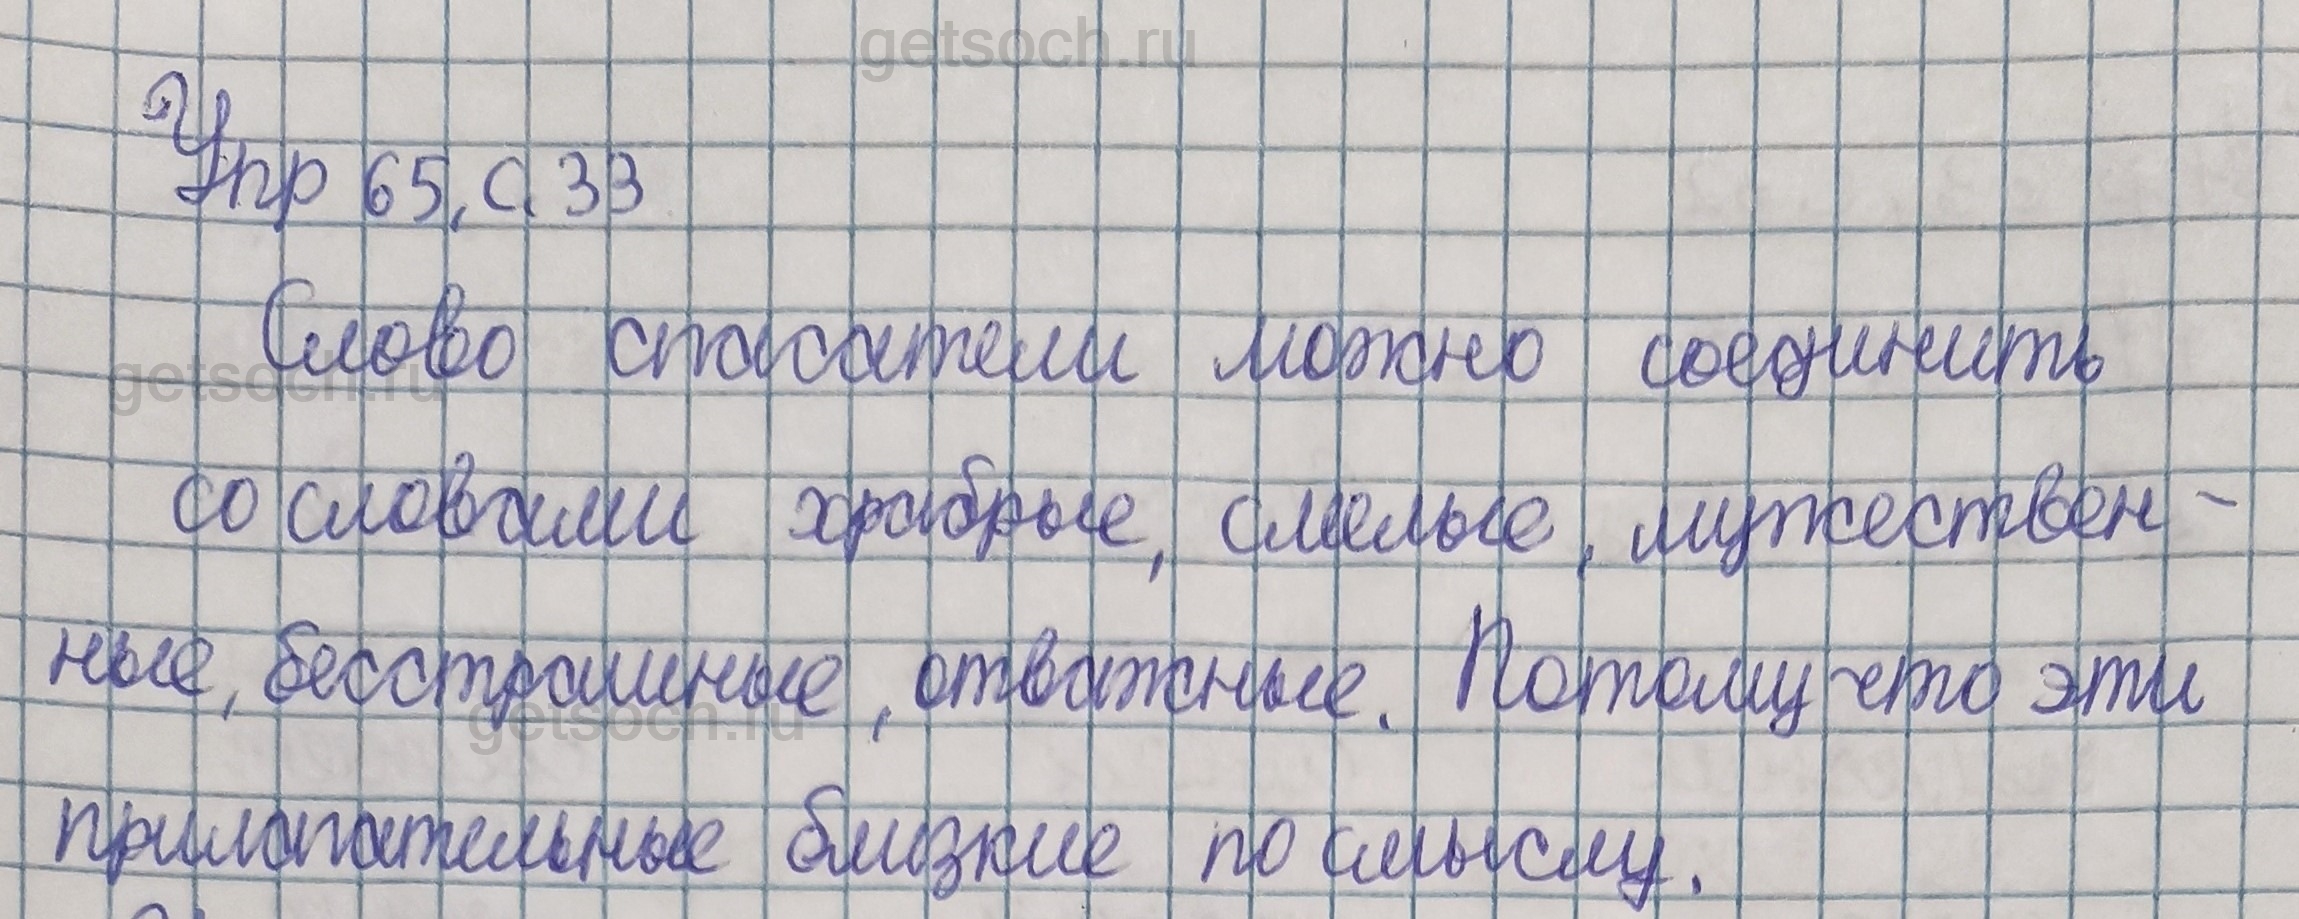 getsoch.ru
Упр 65, с. 33
Слово спасатели можно соединить
getsoch.ru
со словами храбрые, смелые, мужествен-
ные, бесстрашные, отважные. Потому что эти
getsoch.ru
прилагательные близкие по смыслу.